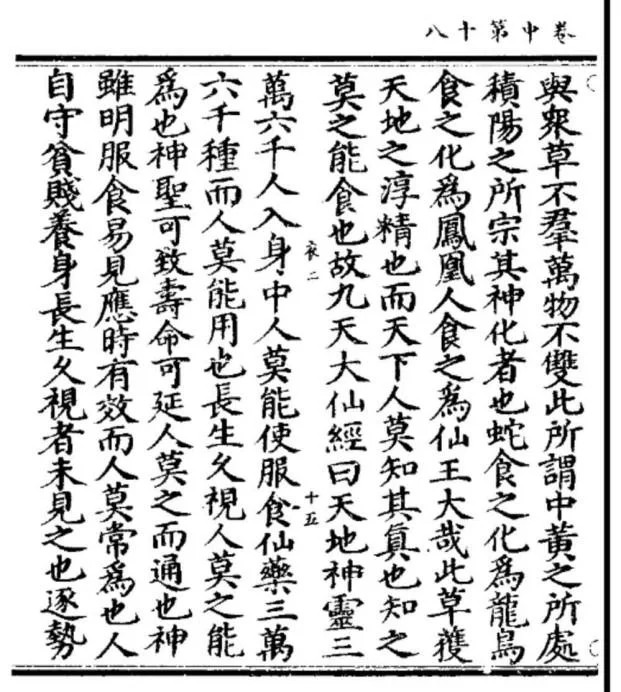 卷中第十八
與衆草不羣萬物不雙此所謂中黄之所處
積陽之所宗其神化者也蛇食之化爲龍鳥
食之化爲鳳凰人食之爲仙王大哉此草獲
天地之淳精也而天下人莫知其真也知之
莫之能食也故九天大仙經曰天地神靈三
衣二
十五
萬六千人入身中人莫能使服食仙藥三萬
六千種而人莫能用也長生久視人莫之能
爲也神聖可致壽命可延人莫之而通也神
雖明服食易見應時有效而人莫常爲也人
自守貧賤養身長生久視者未見之也逐勢